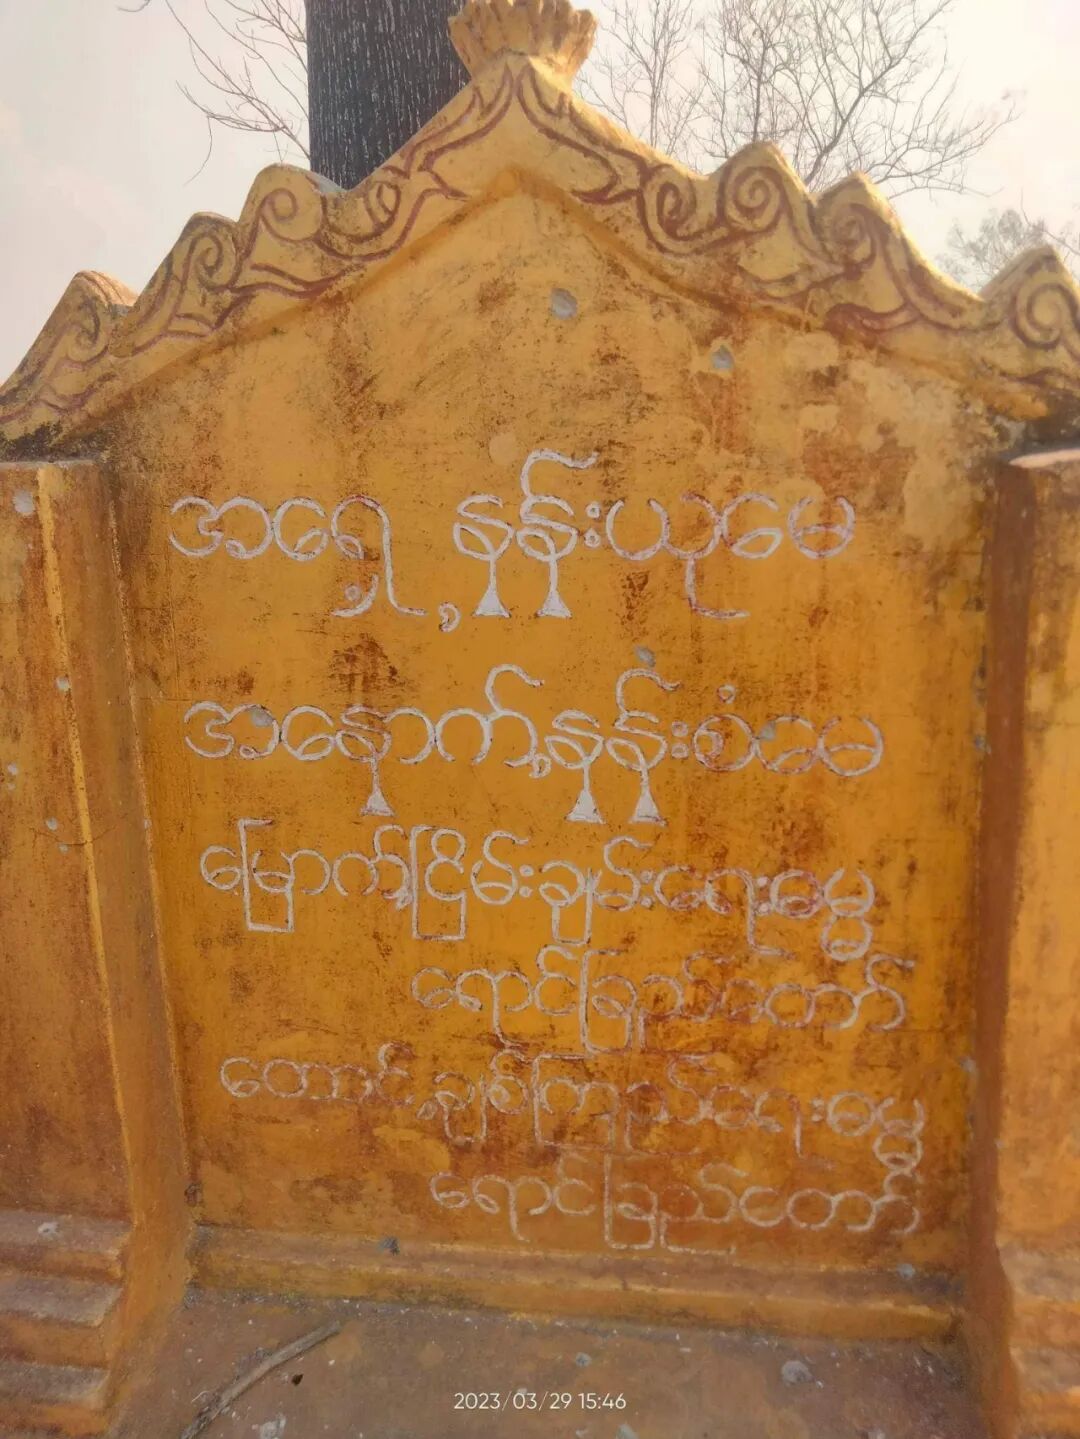 အရှေ့နန်းယုမေ
အနောက်နန်းစံမေ
မြောက်ငြိမ်းချမ်းရေးဓမ္မ
ရောင်ခြည်တော်
တောင်ချစ်ကြည်ရေးဓမ္မ
ရောင်ခြည်တော်
2023/03/29 15:46